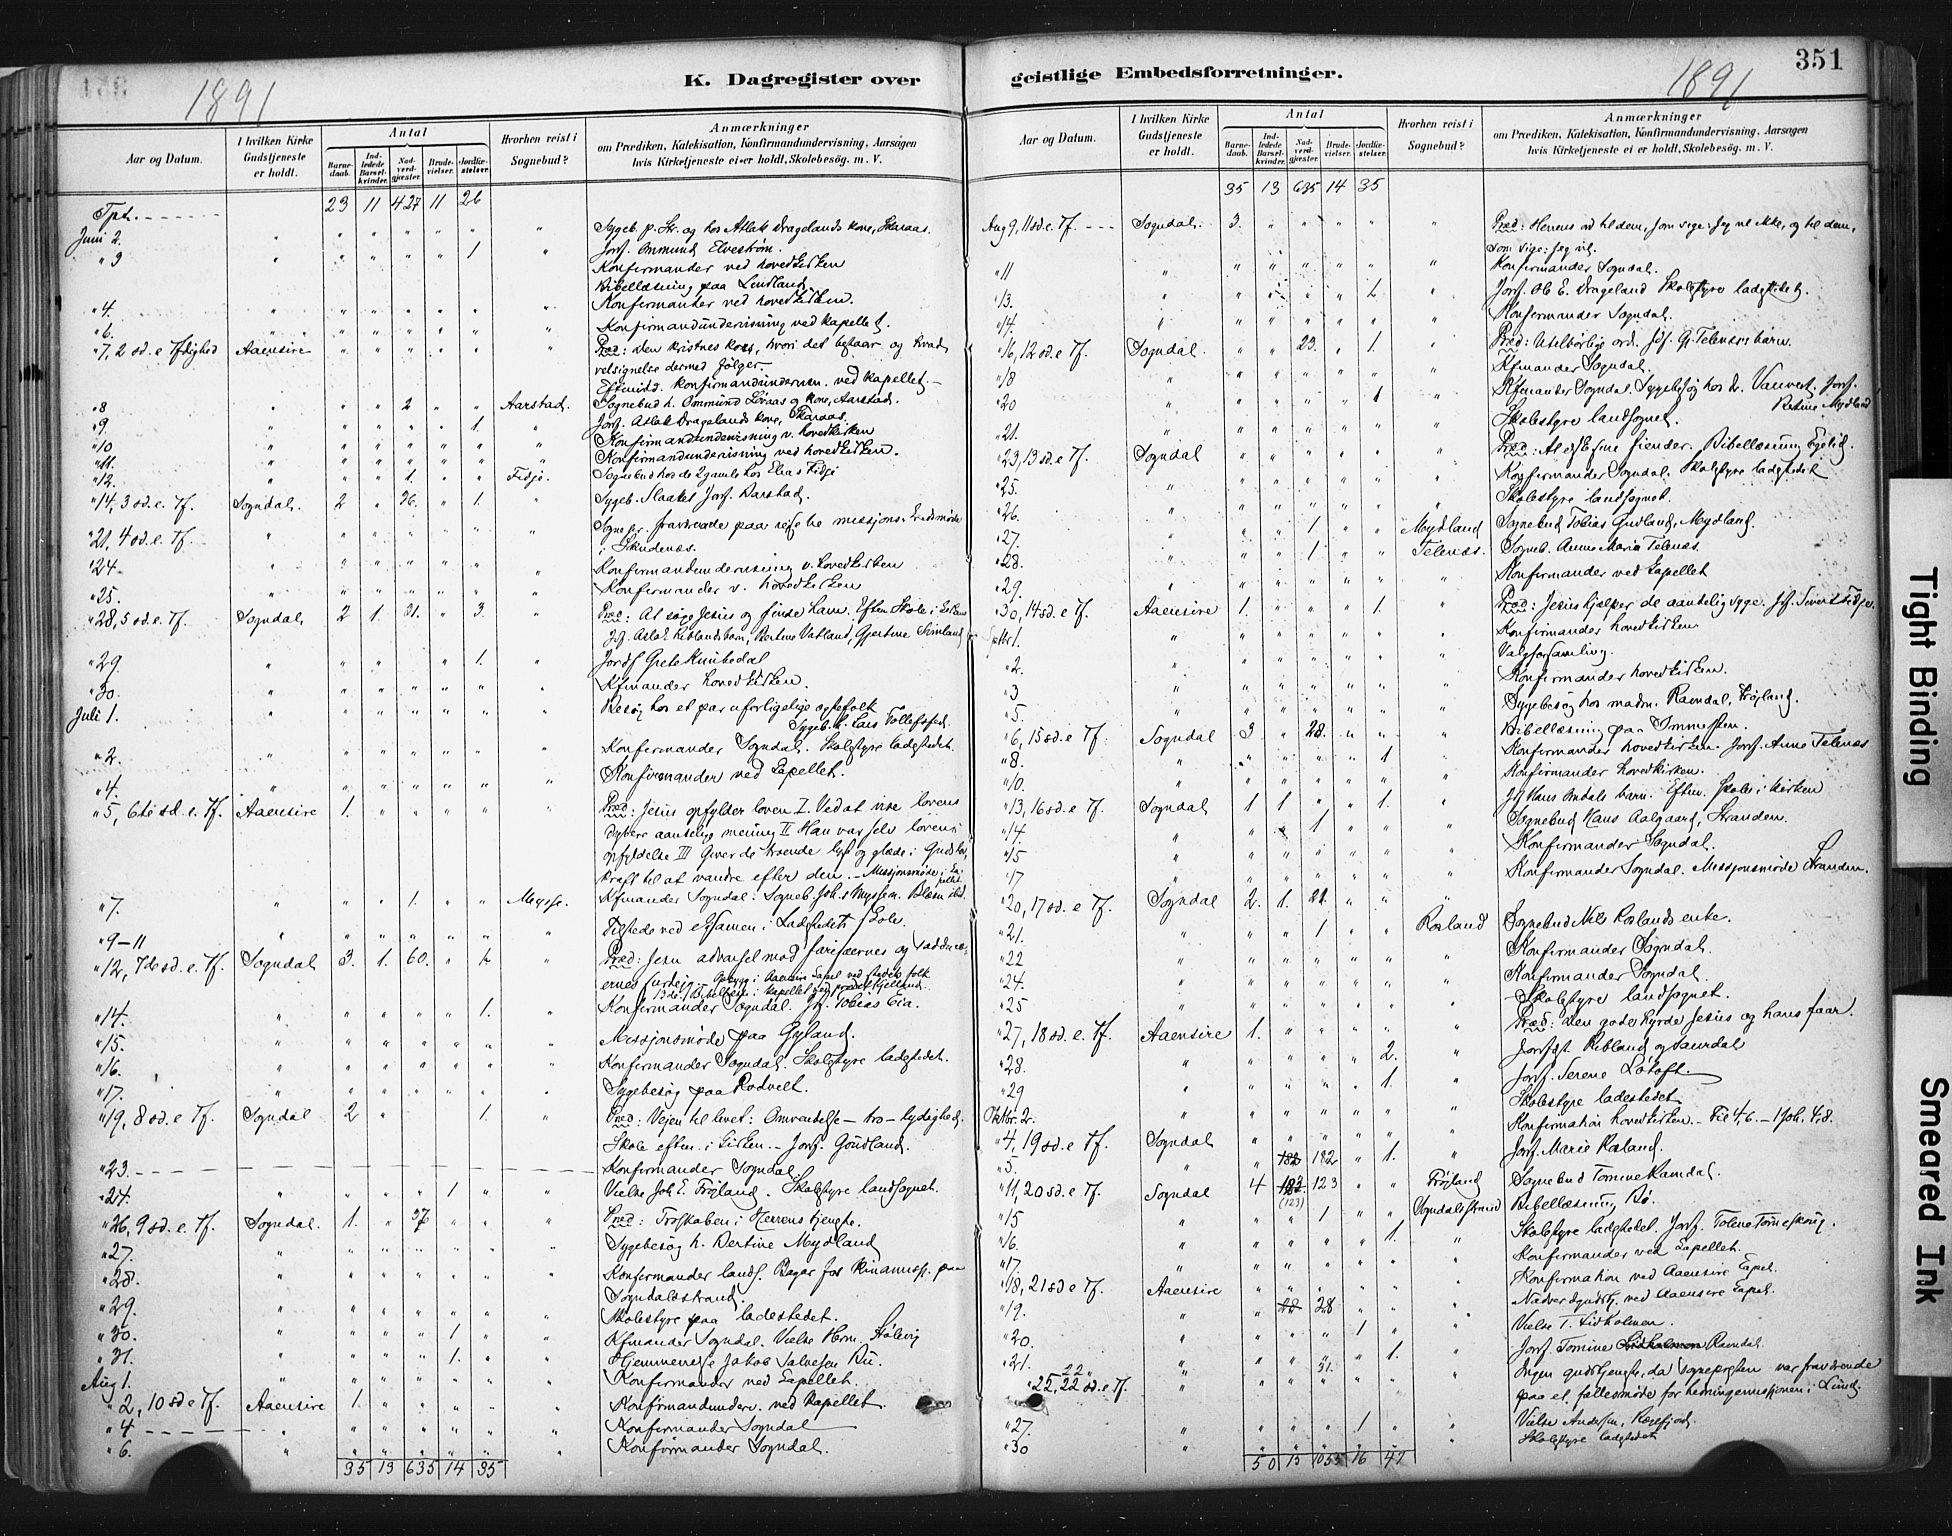 1891
K. Dagregister over
Aar og Datum.
I hvilken Kirke Gudstjeneste er holdt.
Antal
Barne-daab.
Ind-ledede Barsel-kvinder.
Nad-verd-gjæster.
Brude-vielser.
Jordfæ-stelser.
Hvorhen reist i Sognebud?
Anmærkninger
om Prædiken, Katekisation, Konfirmandundervisning, Aarsagen
hvis Kirketjeneste ei er holdt, Skolebesøg. m. V.
Tpt. 23 11 427 11 26
Juni 2. Sygeb. p. Str. og hos Atlak Dragelands kone, Skaraas.
" 3 1 Jorf. Ommund Elvestrøm.
Konfirmander ved hovedkirken
Bibellæsning paa Lindland
" 4. Konfirmander ved hovedkirken.
" 6. Konfirmandundervisning ved kapellet.
" 7, 2 sd. e Tf Aaensire Præd: Den kristnes kors, hvori det bestaar og hvad
velsignelse dermed følger.
Eftmidd. konfirmandundervn. ved kapellet.
" 8 2 Aarstad. Sognebud h. Ommund og kone, Aarstad.
" 9. 1. Jorf. Atlak Dragelands kone, Skaraas.
" 10 Konfirmandundervisning v. hovedkirken
" 11. Konfirmandundervisning ved hovedkirken.
" 12. 1. Fidje. Sognebud hos de 2 gamle hos Elias Fidje
" 14, 3 sd. e. Tf. Sogndal. 2 26. 1. Sygeb. Slaaket Jorf. Barstad.
" 21, 4 sd. e. Tf. Sognepr. fraværende paa reise
i Skudenæs.
" 24. Konfirmandundervisning v. hovedkirken
" 25. Konfirmander v. hovedkirken
" 28, 5 sd. e. Tf. Sogndal 2 1. 31. 3. Præd: At søge Jesus og finde ham. Eftm Skole i kirken
" 29. 1. Jordf Grete Knubedal
" 30. Kfmander hovedkirken.
Juli 1. Besøg hos et par uforligelige egtefolk
Sygeb. h. Lars Tollefsen.
" 2. Konfirmander Sogndal. Skolestyre ladestedet.
" 4. Konfirmander ved kapellet.
" 5, 6te sd. e. Tf. Aaensire 1. Præd: Jesus opfylder loven I. Ved at vise lovens
dybere aandelig mening II Han var selv lovens
opfyldelse III Giver de troende lyst og glæde i Guds lov,
kraft til at vandre efter den. - Missjonsmøde i
" 7. 1. Mysse. Kfmander Sogndal.
" 9-11 Tilstede ved examen i Ladstedets skole.
" 12, 7de sd. e. Tf. Sogndal 3. 1. 60. Præd: Jesu advarsel mod farisæernes og sadducæ-
ernes surdeig.
" 14. 1. Konfirmander Sogndal. Jf. Tobias Eia.
" 15. Missjonsmøde paa Gyland.
" 16. Konfirmander Sogndal. Skolestyre ladestedet.
" 17. Sygebesøg paa Rodvelt.
" 19, 8 sd. e Tf. Sogndal 2 1. Præd: Vejen til livet: Omvendelse - tro - lydighed.
Skole eftm. i kirken. - Jorf. Goudland.
" 23. Konfirmander Sogndal
" 24. 1 Vielse Joh. E. Frøyland. Skolestyre landsognet.
" 26, 9 sd. e. Tf. Sogndal. 1. 37 Præd: Troskaben i Herrens tjeneste.
" 27. Sygebesøg h. Bertine Mydland
" 28. Konfirmander lands. Bazar for Kinamiss. paa
Sogndalsstrand.
" 29. Skolestyre paa ladestedet.
" 30. 1 Kfmander Sogndal. Vielse Hem. Stølsvig
" 31. 1. Hjemmevielse Jakob Salvesen Bu.
Aug 1. Konfirmander ved kapellet.
" 2, 10 sd e Tf. Aaensire 1. Konfirmandunderv. ved kapellet
" 4 Konfirmander Sogndal
" 6. Konfirmander Sogndal.
35 13 635 14 35
1891
351
geistlige Embedsforretninger.
Aar og Datum.
I hvilken Kirke Gudstjeneste er holdt.
Antal
Barne-daab.
Ind-ledede Barsel-kvinder.
Nad-verd-gjæster.
Brude-vielser.
Jordfæ-stelser.
Hvorhen reist i Sognebud?
Anmærkninger
om Prædiken, Katekisation, Konfirmandundervisning, Aarsagen
hvis Kirketjeneste ei er holdt, Skolebesøg. m. V.
35 13 635 14 35
Aug 9, 11 sd. e. Tf. Sogndal. 3. Præd: Herrens ord til dem, som sige: Jeg vil ikke, og til dem,
som sige: Jeg vil.
" 11 Konfirmander Sogndal.
" 13. 2. Jorf. Ole E. Drageland Skolestyre ladestedet.
" 14. Konfirmander Sogndal.
" 16, 12 sd. e Tf. Sogndal. 23. 1. Præd: Utilbørlige ord. Jdf. G. Telenæs barn.
" 18 Kfmander Sogndal.
" 20 1 Kfmander Sogndal. Sygebesøg hos Jorf.
Bertine Mydland
" 21. Skolestyre landsognet.
" 23, 13 sd. e Tf. Sogndal Præd: At elske sine fiender. Bibellæsning
" 25. Konfirmander Sogndal. Skolestyre ladestedet
" 26. Skolestyre landsognet.
" 27. 1 Mydland Sognebud Tobias Gudland, Mydland.
" 28. 1 Telenæs. Sogneb. Anne Maria Telenæs.
" 29. Konfirmander ved kapellet
" 30, 14 sd. e Tf. Aaensire 1. 1. Præd: Jesus hjælper de aandelig syge. Jf. Sivert Fidje.
Septbr 1. Konfirmander hovedkirken
" 2. Valgforsamling.
" 3 Konfirmander hovedkirken.
" 5. Sygebesøg hos madm. Ramdal, Frøyland.
" 6, 15 sd. e Tf. Sogndal 3 28. Bibellæsning paa
" 8. 1 Konfirmander hovedkirken. Jorf. Anne Telenæs
" 10. Konfirmander hovedkirken.
" 13, 16 sd. e Tf. Sogndal 1 1 1. Jf Hans barn. Eftm. skole i kirken
" 14. 1 Sognebud Hans Aalgaard, Stranden.
" 15 Konfirmander Sogndal.
" 17 Konfirmander Sogndal. Missjonsmøde Stranden.
" 20, 17 sd. e Tf. Sogndal 2. 1. 21.
" 21. 1 Røsland Sognebud Nils Røslands enke.
" 22 Konfirmander Sogndal.
" 24. Konfirmander Sogndal
" 25 Skolestyre landsognet.
" 27, 18 sd. e. Tf. Aaensire 1. Præd: Den gode hyrde Jesus og hans faar.
" 28. 2. Jorfdst. Ribland og
" 29 1. Jorf. Serene Løtoft
Oktbr. 2. Skolestyre ladestedet
" 4, 19 sd. e Tf. Sogndal Konfirmation hovedkirken.
" 5. 182 182 1. Jorf. Marie Røsland.
" 11, 20 sd. e Tf. Sogndal 4 182 (123) 123 Frøyland Sognebud Tomine Ramdal.
" 15 1 Sogndalsstrand Bibellæsning Bø.
" 16. 1. Skolestyre ladestedet. Jorf. Tolene
" 17. Konfirmander ved kapellet.
" 18, 21 sd e Tf. Aaensire Konfirmation ved Aaensire kapel.
" 19. 28 28 Nadverdgudstj. ved Aaensire kapel.
" 20. 1 Vielse T. Lidholmen.
" 21. 1. Jorf. Tomine Lidholmen Ramdal.
" 25, 22 sd. e Tf. 31. Ingen gudstjeneste, da sognepresten var fraværende
paa et fællesmøde for hedningemissjonen i Lund.
" 27. 1 Vielse Andersen, Rægefjord.
" 30 Skolestyre ladestedet
50 15 1055 16 47
Tight Binding
Smeared Ink